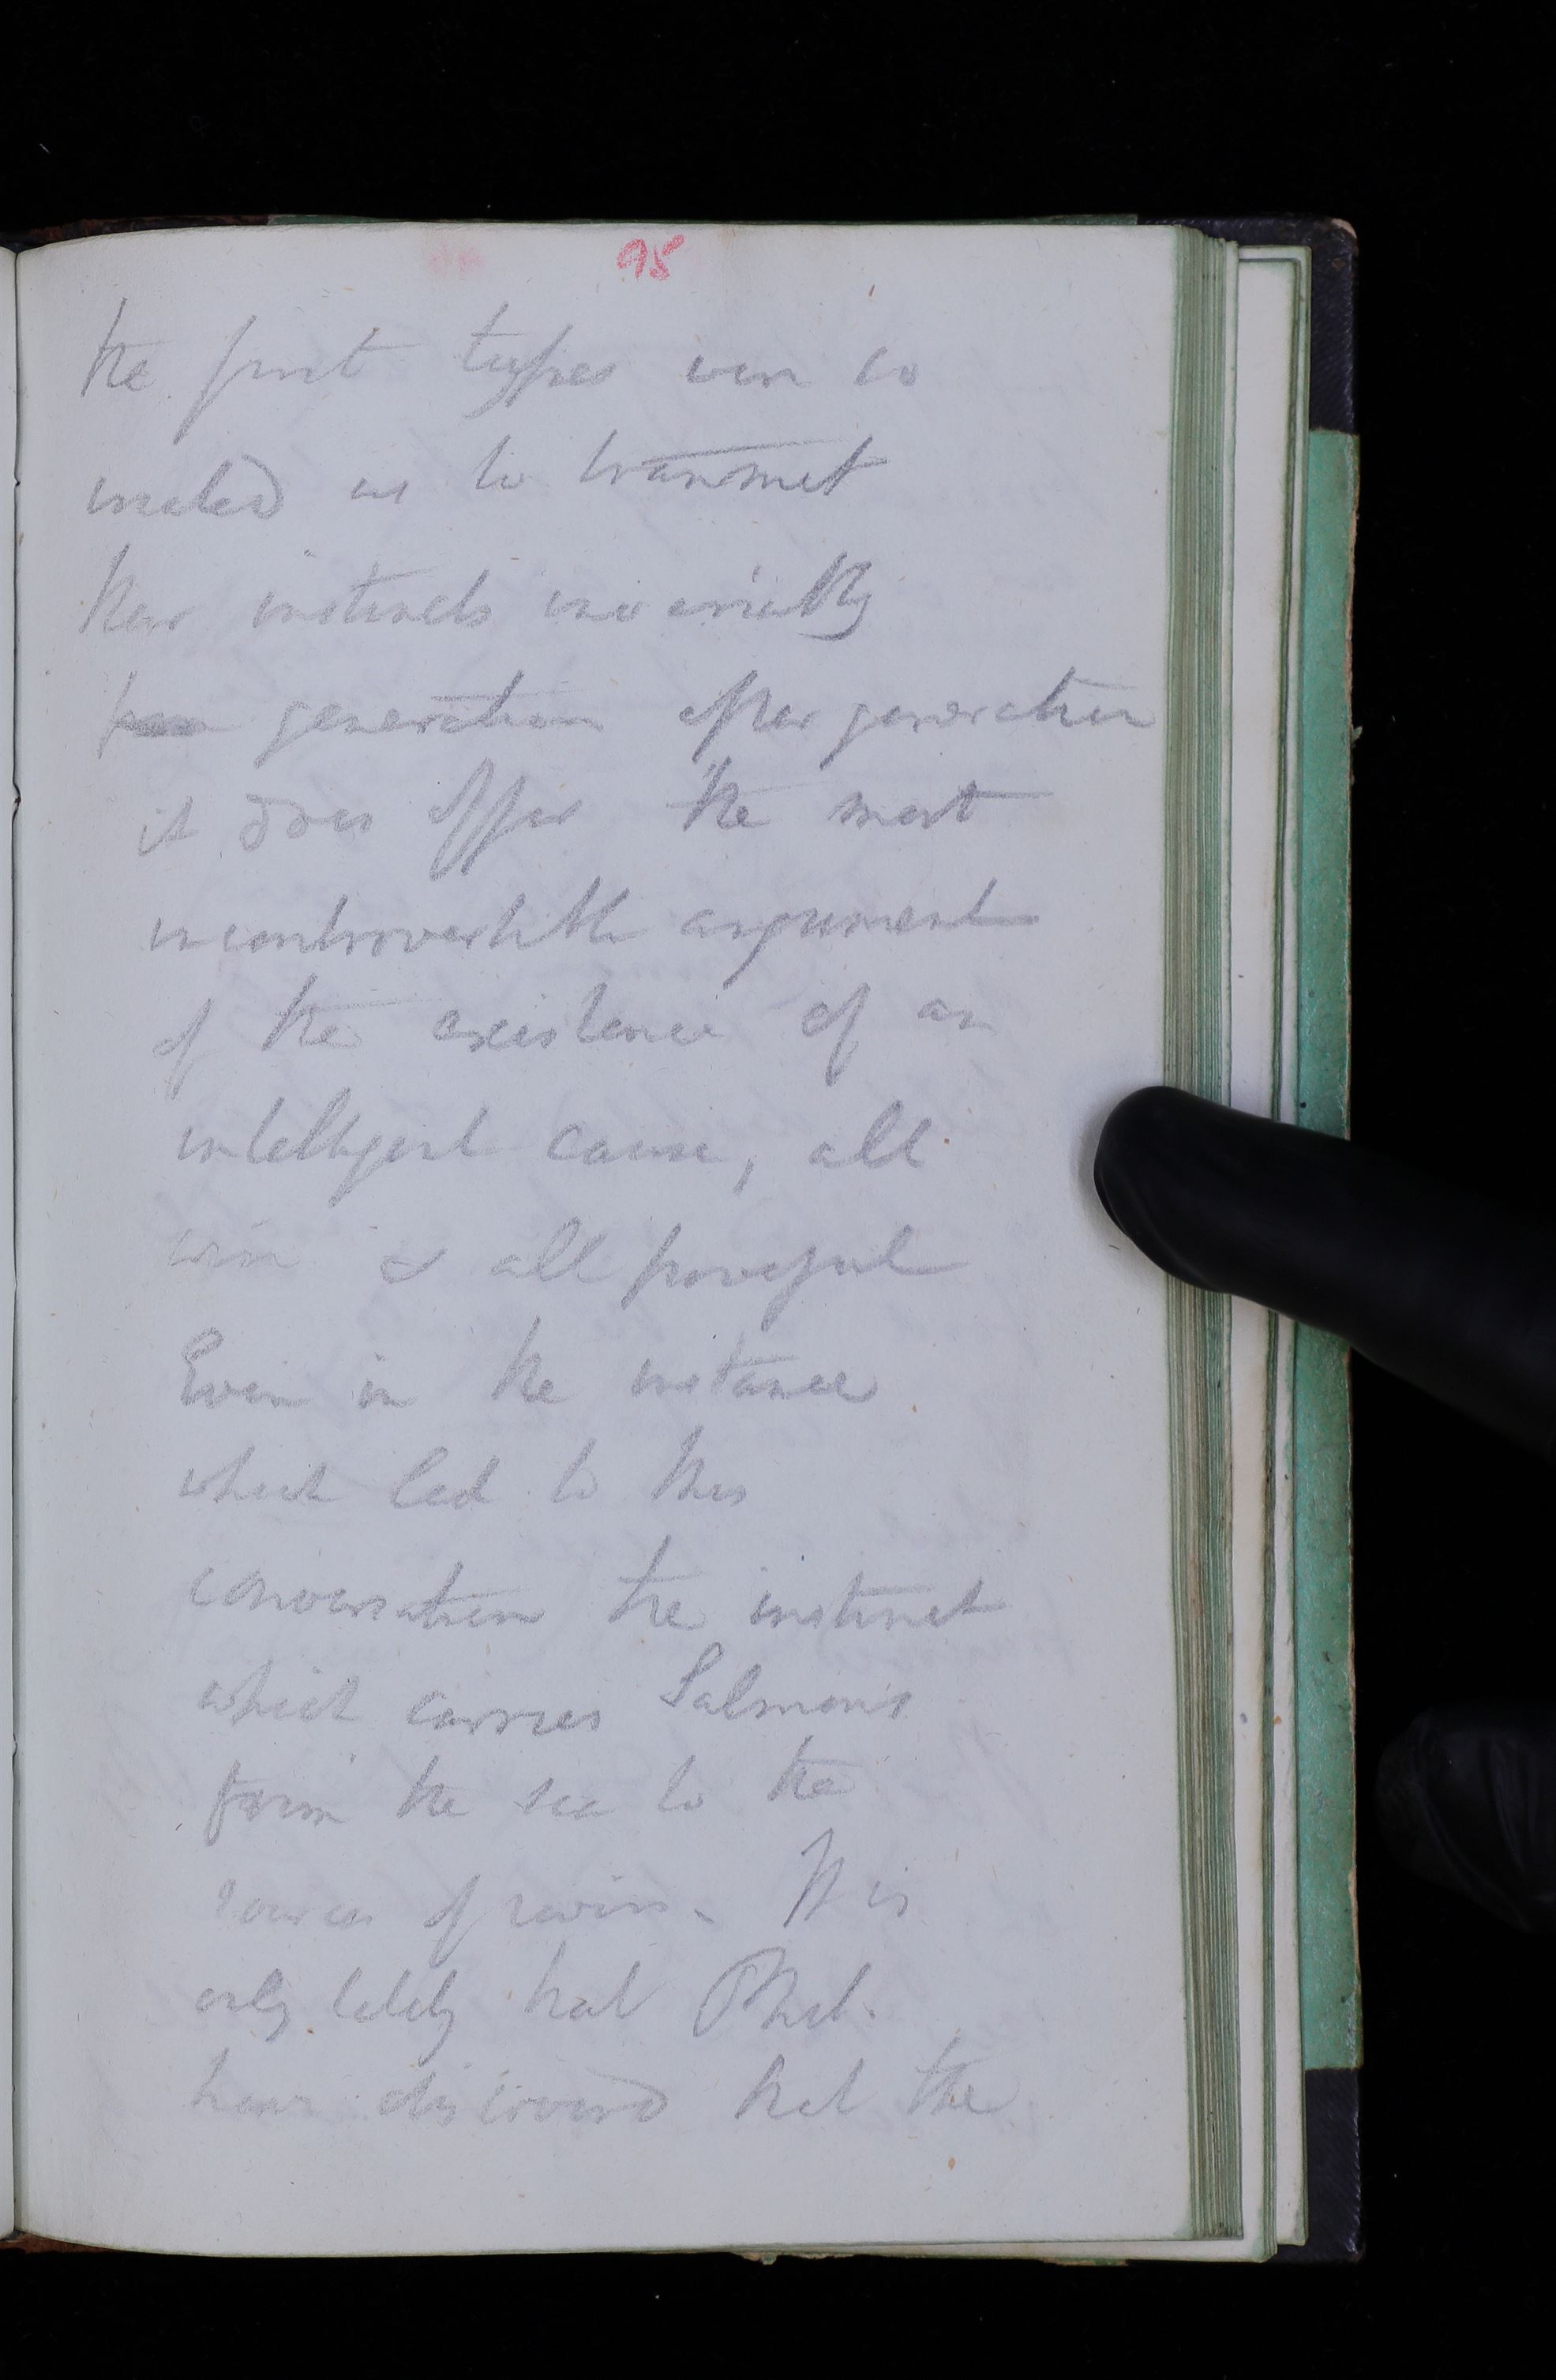 95
the first types were so
created as to transmit
their instincts invariably
generation after generation
it does offer the most
incontrovertible argument
of the existence of an
intelligent cause, all
wise & all powerful
Even in the instance
which led to this
conversation the instinct
which carries Salmons
from the sea to the
sources of rivers. It is
only lately that Phil.
have discovered that the